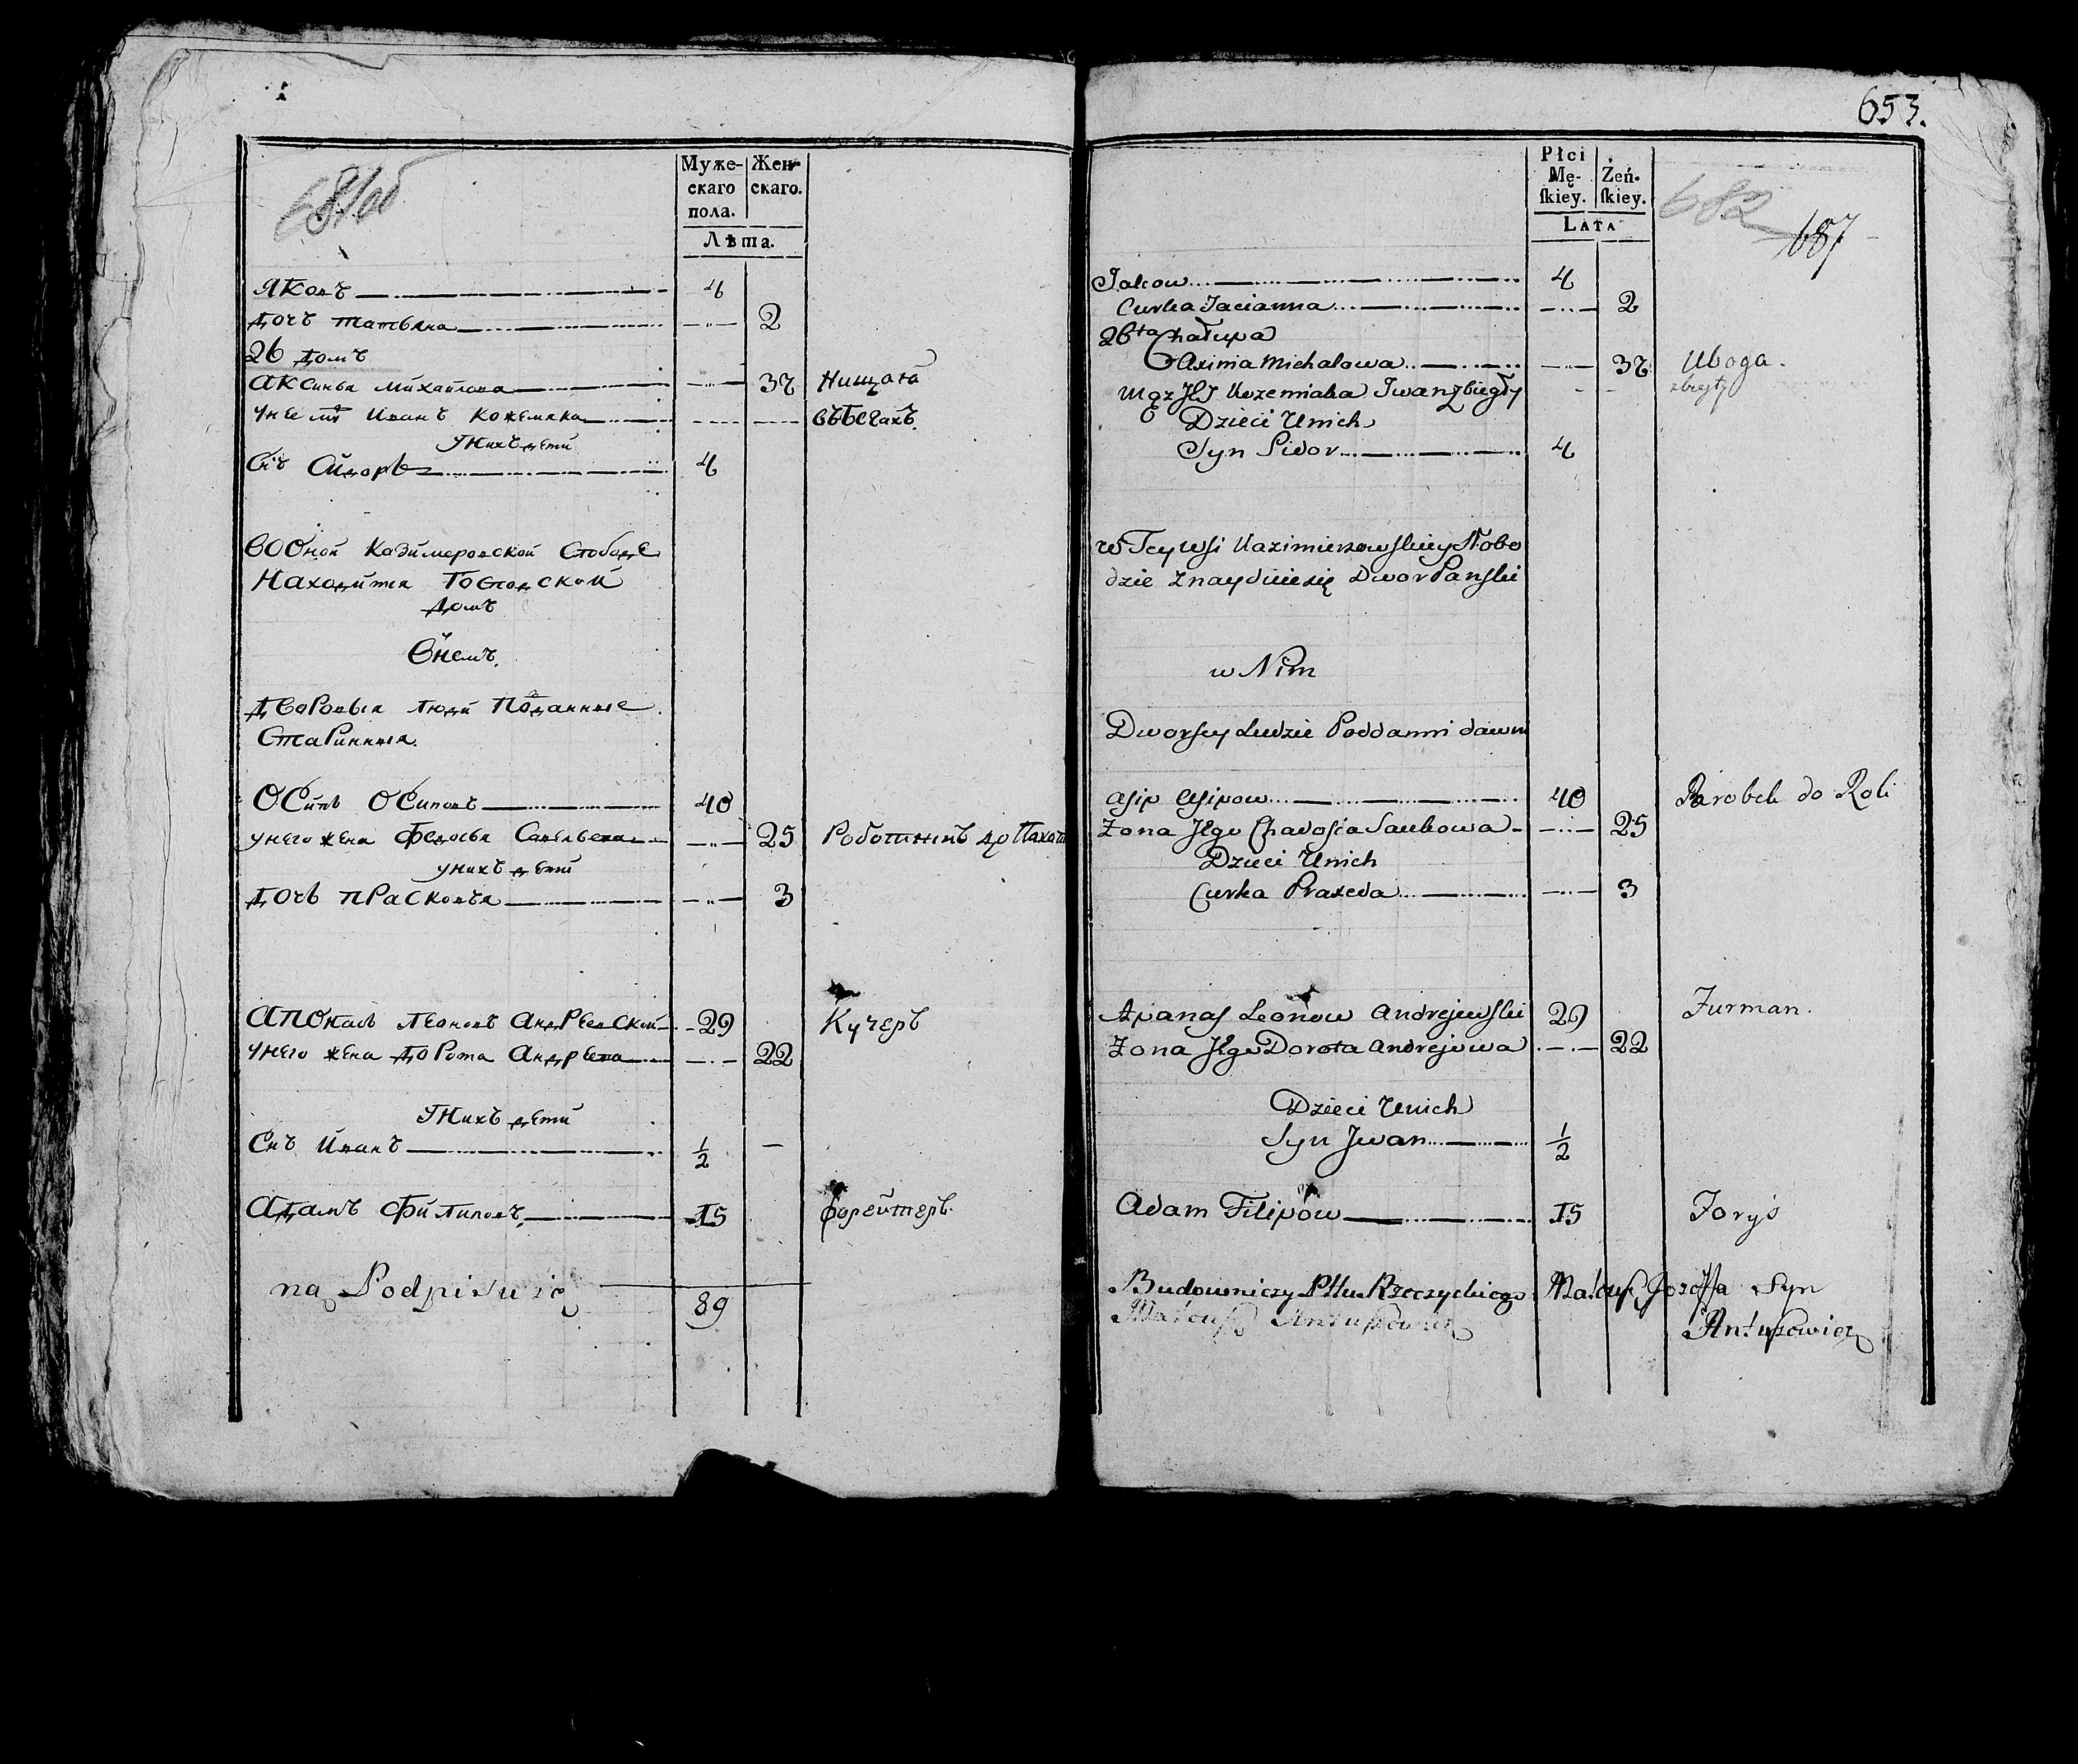 681об
Муже-
скаго
пола.
Жен-
скаго.
Лѣта.
Яковъ 4
дочь татьяна 2
26 домъ
аксинья михайлова 32 Нищота
унее мъ Иванъ кожемяка въбегахъ.
Унихъ дети
Сiъ Сидоръ 4
вООной Казимеровской Слободе
Находится Господской
домъ
Внемъ.
дворовыя люди Поданные
Старинныя.
ОСипъ ОСиповъ 40
унего жена Федосья Савельева 25 Роботникъ до Пахоты
унихъ дети
дочь прасковья 3
апонасъ Леоновъ андреевской 29 Кучеръ
унего жена дорота андреева 22
Унихъ дети
Снъ Иванъ 1/2
адамъ Филиповъ 15 форейтеръ.
na Podpisuię
89
653.
Płci
Mę-
ſkiey.
Żeń-
ſkiey.
LATA
682
687
Jakow 4
Curka Tacianna 2
26ta Chałupa
Axinia Michałowa 32 Uboga.
Mąz JEJ Kozemiaka Jwan zbiegły zbiegły
Dzieci Unich
Syn Sidor 4
w Tey wsi Kazimierzowskiey Słobo
dzie znayduie się Dwor Panski
w Nim
Dworscy Ludzie Poddanni dawni
Asip Asipow 40 Parobek do Roli
Zona JEgo Chadosia Saukowa 25
Dzieci Unich
Curka Praxeda 3
Apanas Leonow Andrejewski 29 Furman.
Zona JEgo Dorota Andrejowa 22
Dzieci Unich
Syn Jwan 1/2
Adam Filipow 15 Foryś
Budowniczy Pttu Rzeczyckiego Mateusz Jozeffa Syn
Mateusz Antuszewicz
Antuszewicz